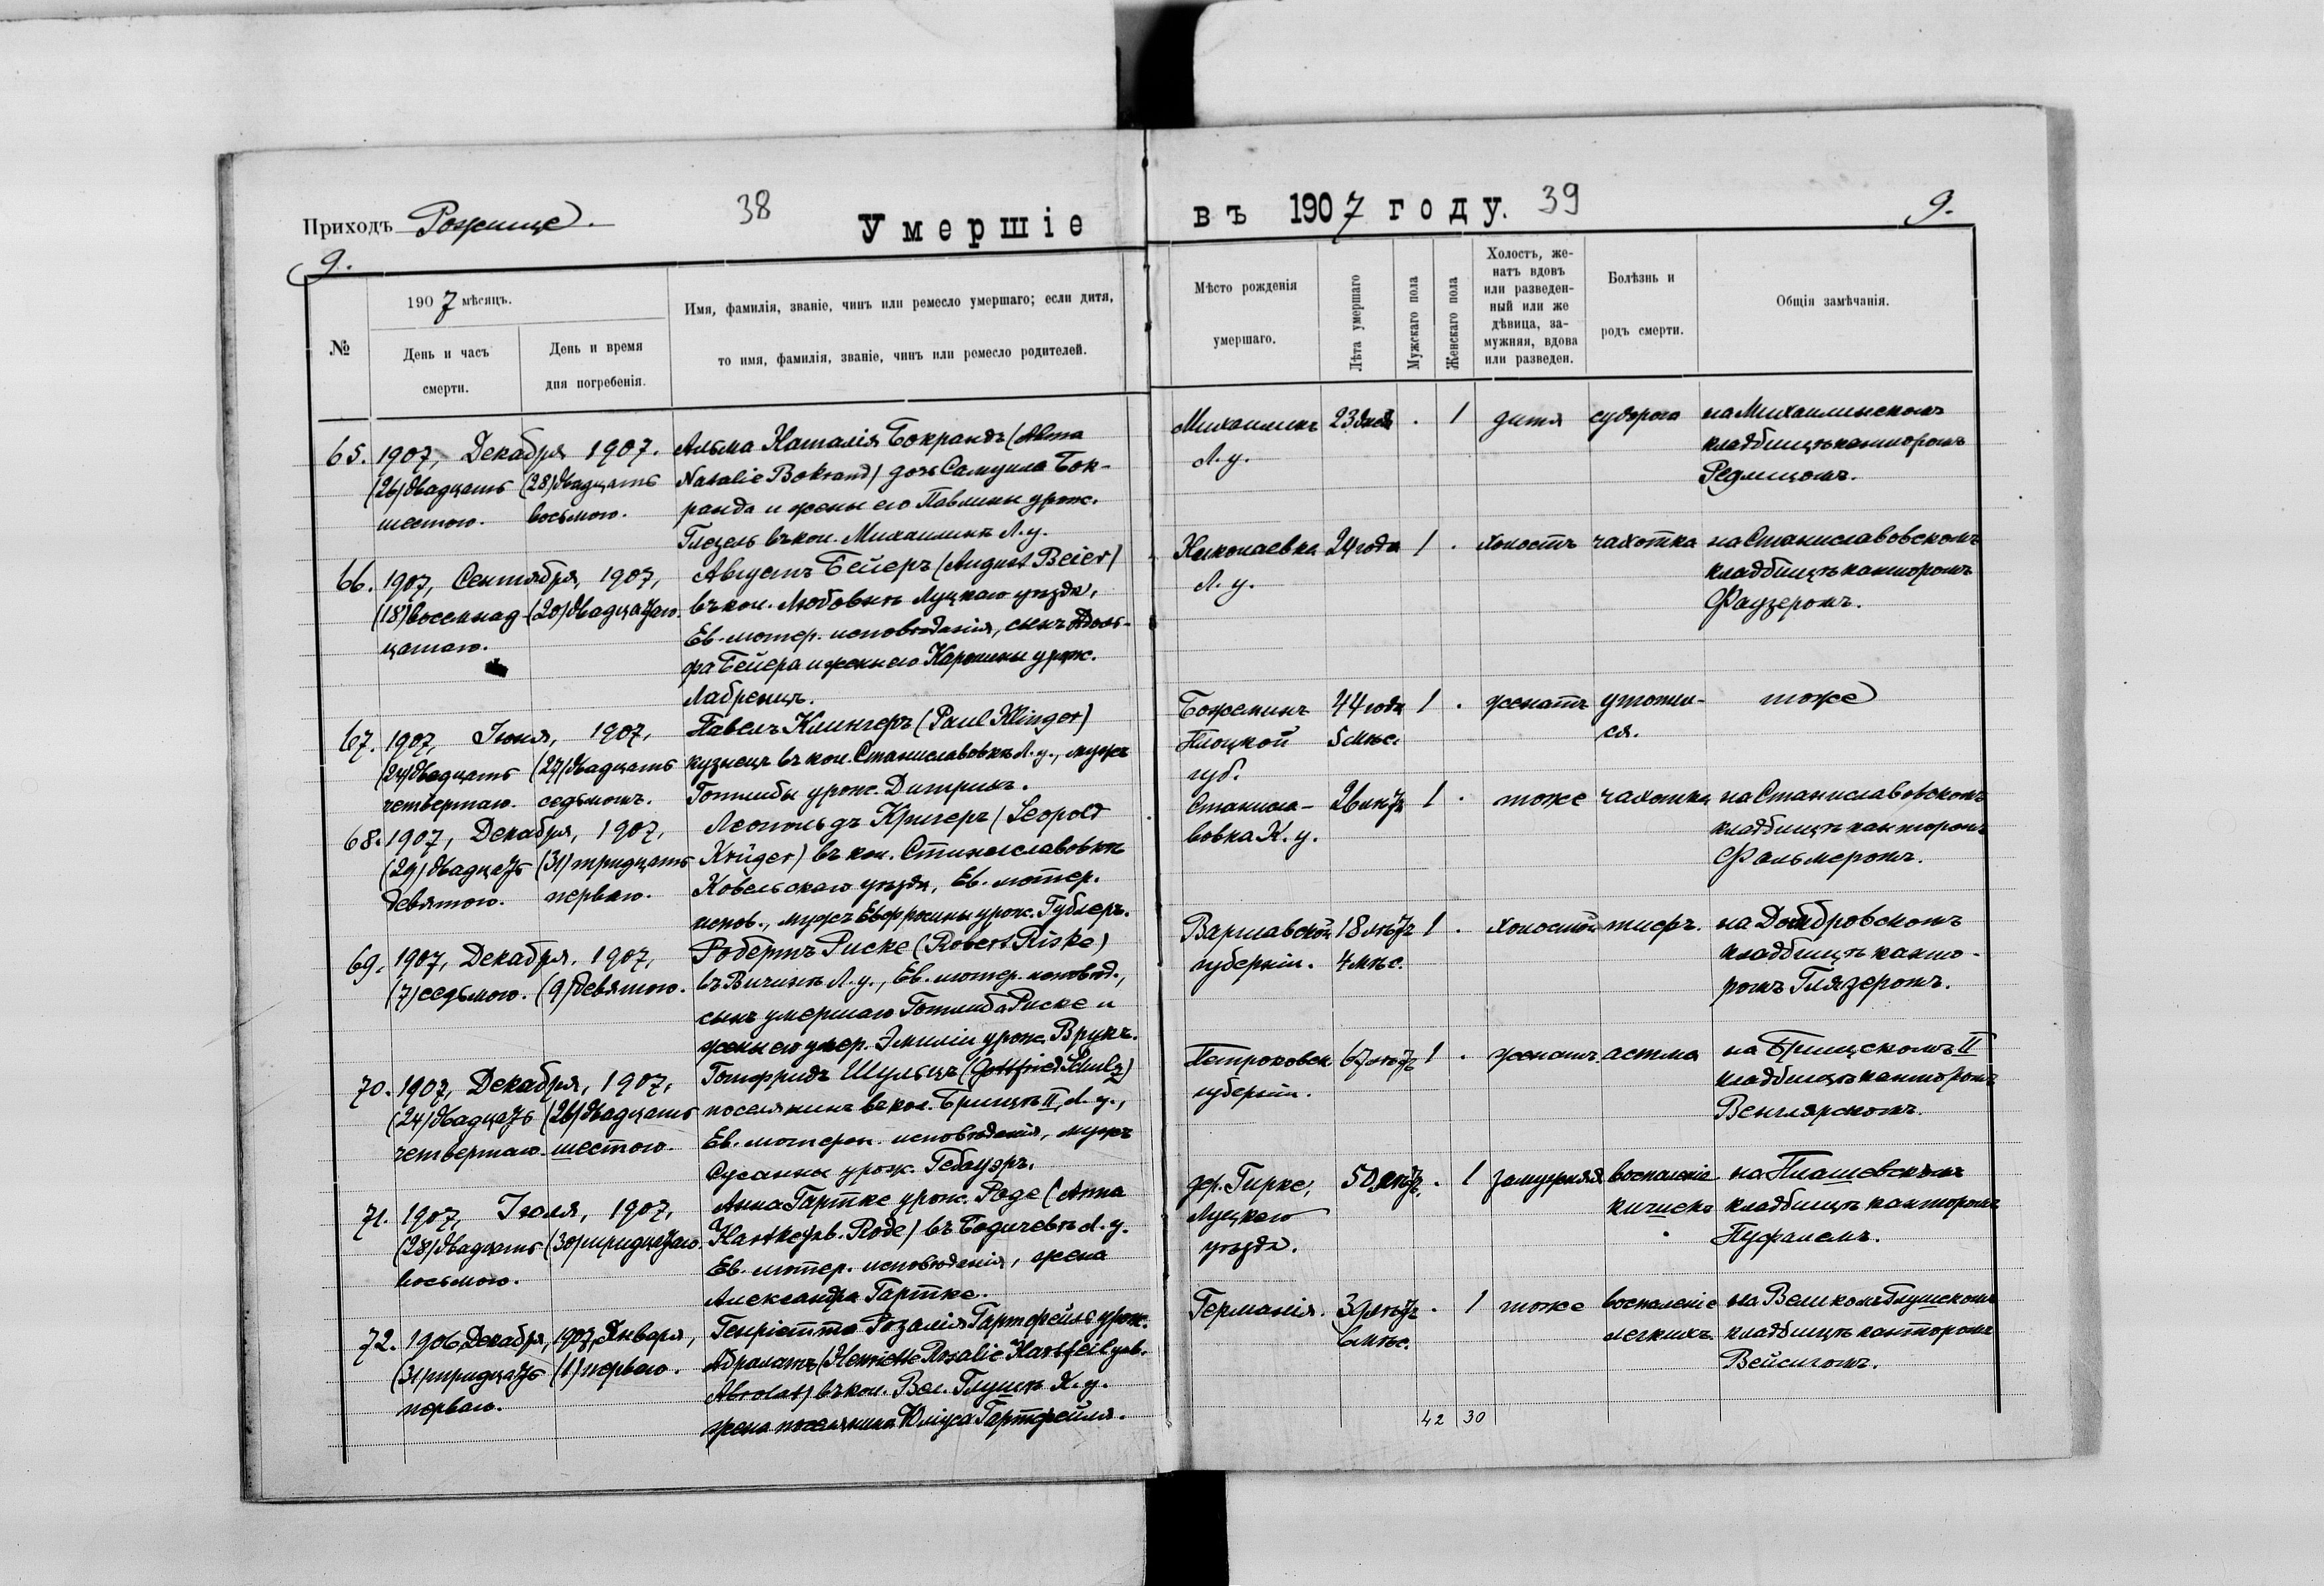 Приходъ Рожище. 38 Умершіе
9.
№
1907 мѣсяцъ.
День и часъ смерти.
День и время дня погребенія.
Имя, фамилія, званіе, чинъ или ремесло умершаго; если дитя,
то имя, фамилія, званіе, чинъ или ремесло родителей.
65. 1907, Декабря 1907. Альма Наталія Бокрандъ (Alma
(26) двадцать (28) двадцать Natalie Bokrand) дочь Самуила Бок-
шестого. восьмого. ранда и жены его Павлины урож.
Глезель въ кол. Михаилинѣ Л. у.
66. 1907, Сентября, 1907, Августъ Бейеръ (August Beier)
(18) восемнад- (20) двадцатаго. въ кол. Любовкѣ Луцкаго уѣзда,
цатаго. Ев.-лютер. исповѣданія, сынъ Адоль-
фа Бейера и жены его Каролины урож.
Лабренцъ.
67. 1907, Іюня, 1907, Павелъ Клингеръ (Paul Klinger)
(24) двадцать (27) двадцать кузнецъ въ кол. Станиславовкѣ Л. у., мужъ
четвертаго. седьмого. Готлибы урож. Дитрихъ.
68. 1907, Декабря, 1907, Леопольдъ Кригеръ (Leopold
(29) двадцать (31) тридцать Krüger) въ кол. Станиславовкѣ
девятого. перваго. Ковельскаго уѣзда, Ев. лютер.
испов., мужъ Евфрозины урож. Гублеръ.
69. 1907, Декабря. 1907, Робертъ Риске (Robert Riske)
(7) седьмого. (9) девятого. въ Вичинѣ Л. у., Ев. лютер. исповѣд.,
сынъ умершаго Готлиба Риске и
жены его умер. Эмиліи урож. Врукъ.
70. 1907, Декабря, 1907, Готфридъ Шульцъ (Gottfried Schulz)
(24) двадцать (26) двадцать поселянинъ въ кол. Брищѣ II, Л. у.,
четвертаго. шестого. Ев. лютеран. исповѣданія, мужъ
Сусанны урож. Гебауэръ.
71. 1907, Іюля, 1907, Анна Гартке урож. Роде (Anna
(28) двадцать (30) тридцатаго. Hartke geb. Rode) въ Бодичевѣ Л. у.
восьмого. Ев. лютер. исповѣданія, жена
Александра Гартке.
72. 1906 Декабря, 1907, Января, Генріетта Розалія Гартфейль урож.
(31) тридцать (1) перваго. Абролатъ (Henriette Rosalie Hartfeil geb.
перваго. Abrolat) въ кол. Вел. Глушѣ К. у.
жена поселянина Юліуса Гартфейля.
въ 1907 году. 39 9.
Мѣсто рожденія умершаго.
Лѣта умершаго
Мужскаго пола
Женскаго пола
Холостъ, же-
натъ вдовъ
или разведен-
ный или же
дѣвица, за-
мужняя, вдова
или разведен.
Болѣзнь и родъ смерти.
Общія замѣчанія.
Михаилинъ 23 дней . 1 дитя судорога на Михаилинскомъ
Л. у. кладбищѣ канторомъ
Редлицомъ.
Николаевка 24 года 1 . холостъ чахотка на Станиславовскомъ
Л. у. кладбищѣ канторомъ
Фаузеромъ.
Божеминъ 44 года 1 . женатъ утопил- тоже
Плоцкой 5 мѣс. ся.
губ.
Станисла- 26 лѣтъ 1 . тоже чахотка на Станиславовскомъ
вовка К. у. кладбищѣ канторомъ
Фальмеромъ.
Варшавской 18 лѣтъ 1 . холостой тифъ. на Домбровскомъ
губерніи. 4 мѣс. кладбищѣ канто-
ромъ Глязеромъ.
Петроковск. 67 лѣтъ 1 . женатъ. астма на Брищскомъ II
губерніи. кладбищѣ канторомъ
Венглярскомъ.
дер. Гирке, 50 лѣтъ. . 1 замужняя воспаленіе на Плашевскомъ
Луцкаго кишекъ кладбищѣ канторомъ
уѣзда. Пуфалемъ.
Германія. 39 лѣтъ . 1 тоже воспаленіе на Великомъ Глушскомъ
6 мѣс. легкихъ. кладбищѣ канторомъ
Вейсигомъ.
42 30